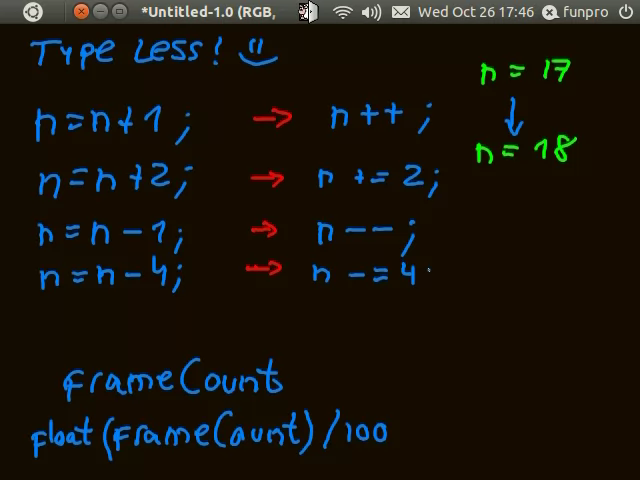 *Untitled-1.0 (RGB, Wed Oct 26 17:46 funpro
Type Less!
n = 17
n=n+1; → n++;
n = 18
n=n+2; → n += 2;
n=n-1; → n--;
n=n-4; → n -= 4
frameCount
float(frameCount)/100